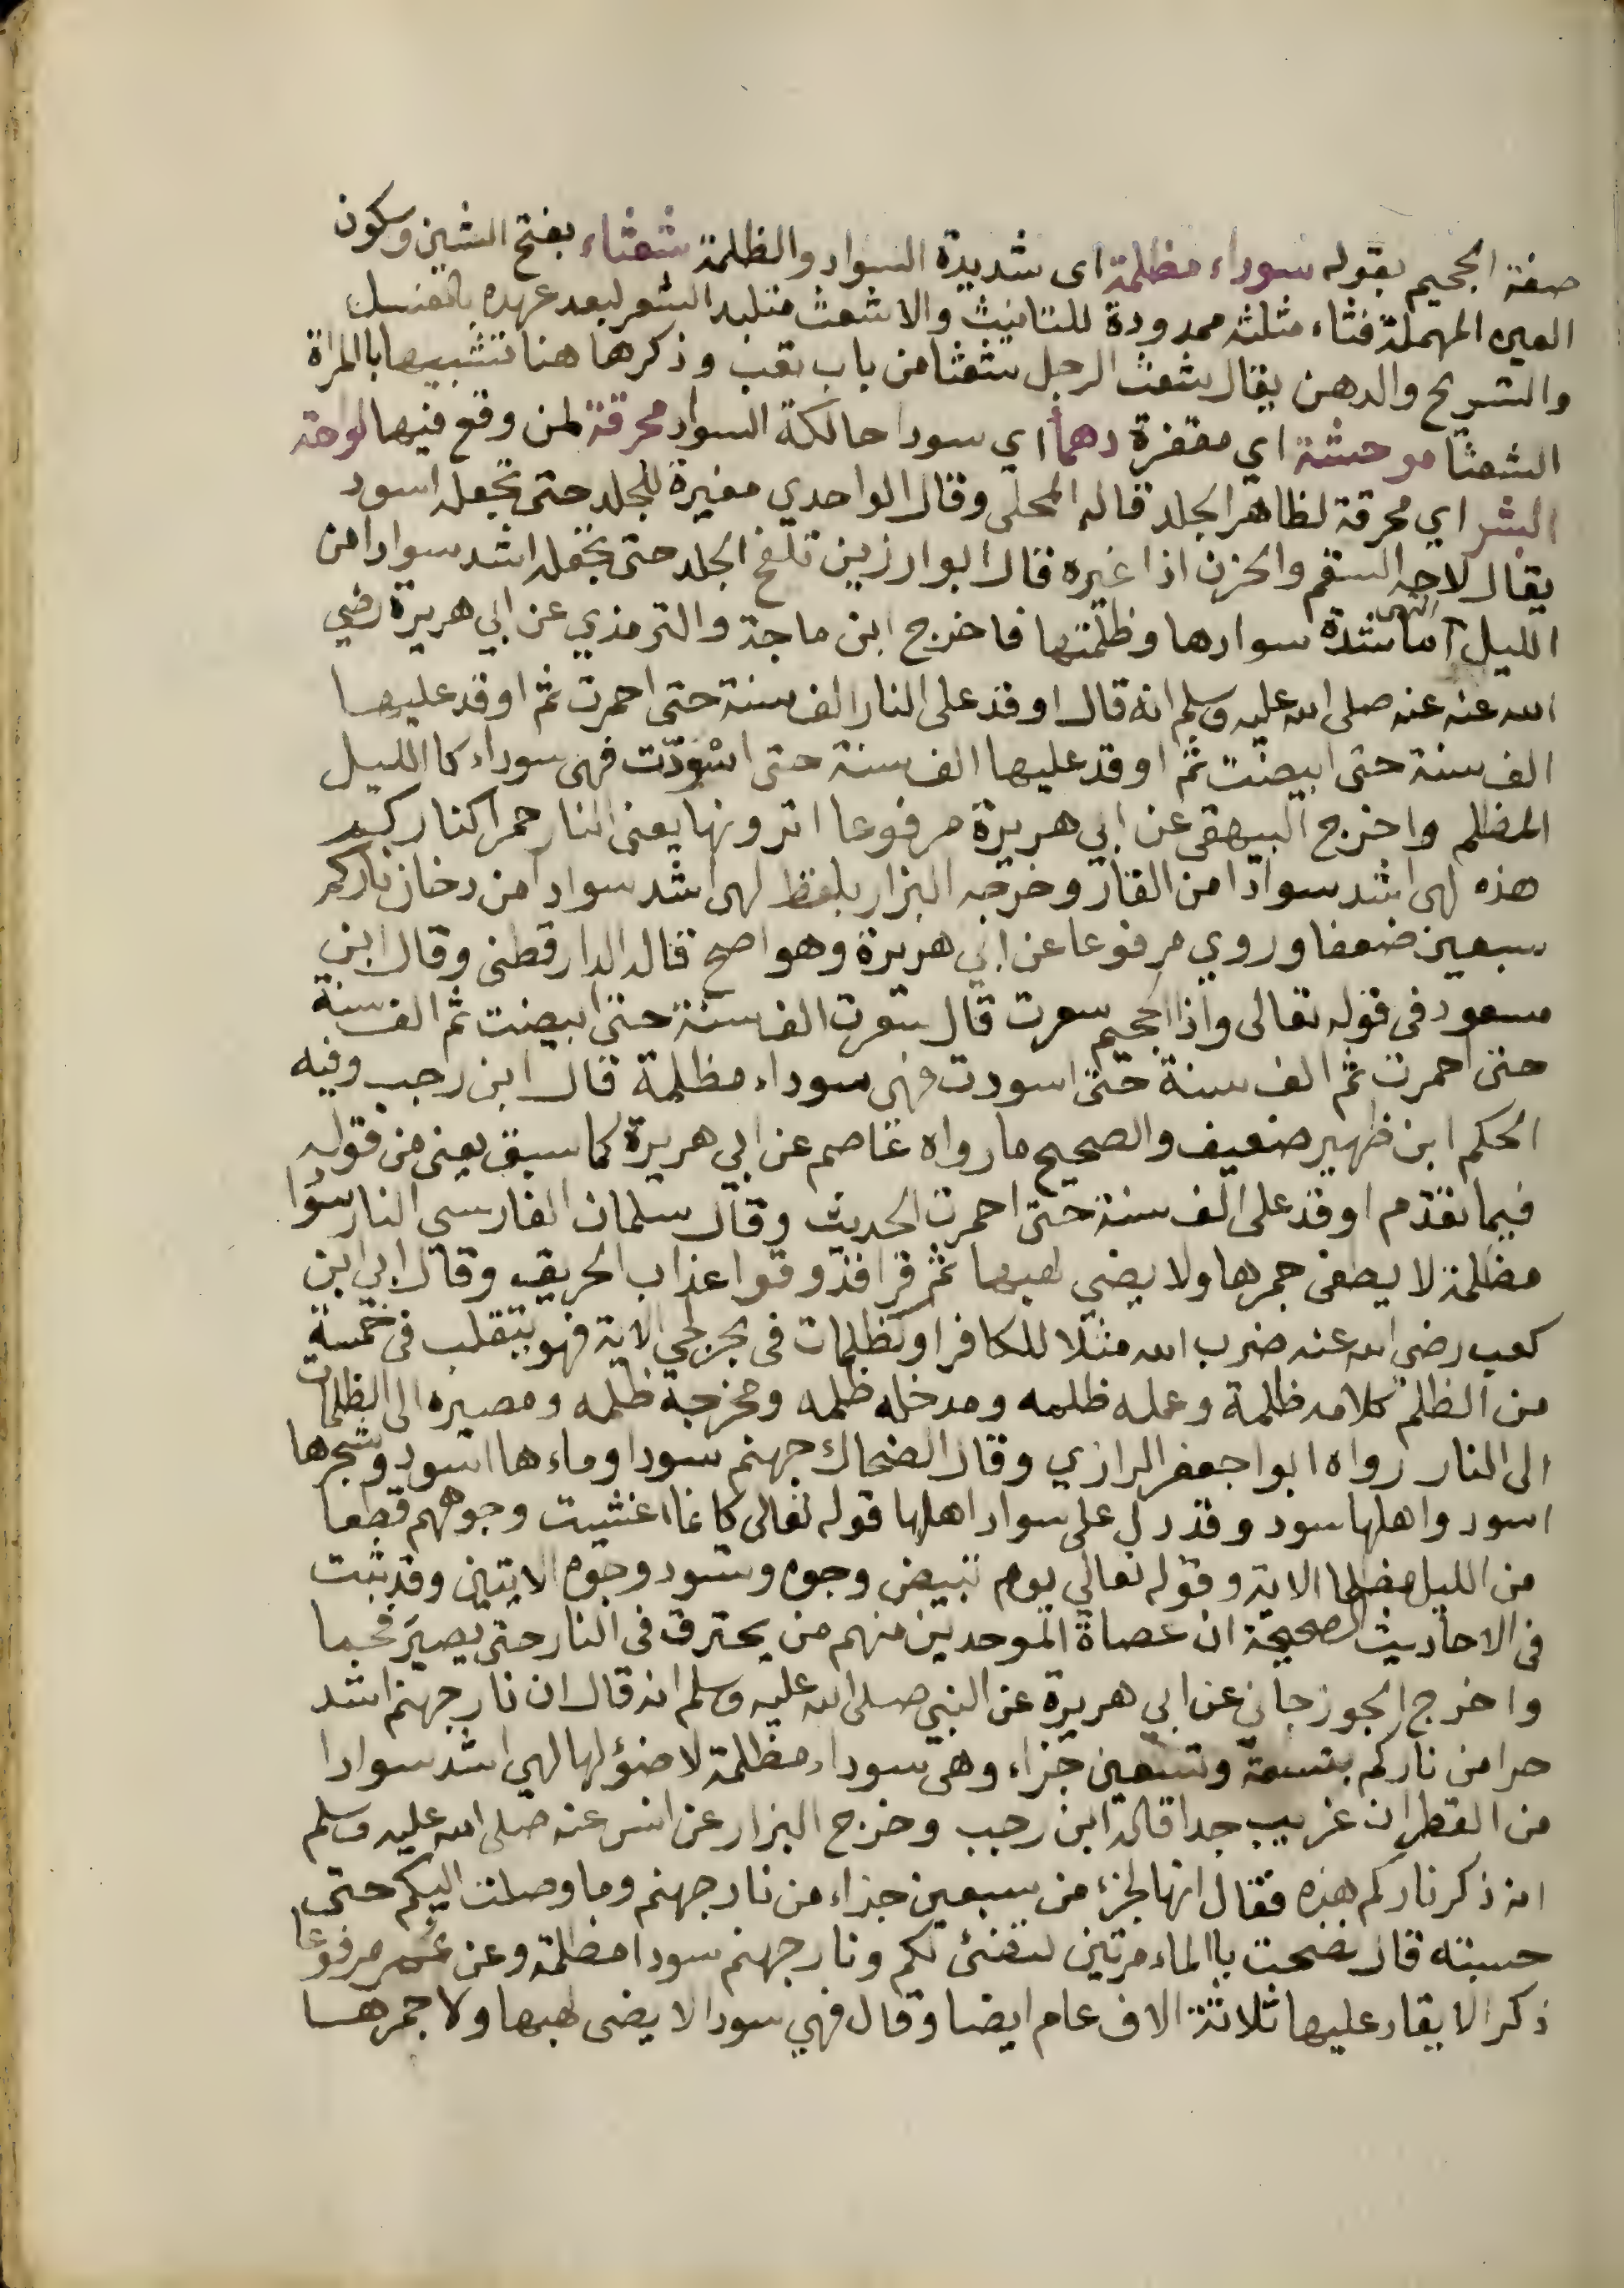 صفة الجحيم بقوله سوداء مظلمة اى شديدة السواد والظلمة شعثاء بفتح الشين وسكون
العين المهملة فثاء مثلثه ممدودة للتانيث والاشعث متلبد الشعر لبعد عهده بالغسل
والتسريح والدهن يقال شعث الرجل شعثا من باب تعب وذكرها هنا تشبيها باالمراة
الشعثا موحشة اي مقفرة دهما اي سودا حالكة السواد محرقة لمن وقع فيها لواحة
البشر اي محرقة لظاهر الجلد قاله المحلى وقال الواحدي مغيرة للجلد حتى تجعله اسود
يقال لاحه السقم والحزن اذا غيره قال ابوا رزين تلفح الجلد حتى تجعله اشد سوادا من
الليل انتهى اما شدة سوادها وظلمتها فاخرج ابن ماجة والترمذي عن ابي هريرة رضي
الله عنه عنه صلى الله عليه وسلم انه قال اوقد على النار الف سنة حتى احمرت ثم اوقد عليها
الف سنة حتى ابيضت ثم اوقد عليها الف سنة حتى اسْوَدّت فهى سوداء كا الليل
المظلم واخرج البيهقى عن ابي هريرة مرفوعا اترونها يعنى النار حمرا كناركم
هذه لهى اشد سوادا من القار وخرجه البزار بلفظ لهى اشد سوادا من دخان ناركم
سبعين ضعفا وروي مرفوعا عن ابي هريرة وهو اصح قاله الدارقطنى وقال ابن
مسعود فى قوله تعالى واذا الجحيم سعرت قال سعرت الف سنة حتى ابيضت ثم الف سنة
حتى احمرت ثم الف سنة حتى اسودت فهى سوداء مظلمة قال ابن رجب وفيه
الحكم ابن ظهير ضعيف والصحيح ما رواه عاصم عن ابي هريرة كما سبق يعنى من قوله
فيما تقدم اوقد على الف سنة حتى احمرت الحديث وقال سلمان الفارسي النار سودا
مظلمة لا يطفى جمرها ولا يضى لهبها ثم قرا فذوقوا عذاب الحريق وقال ابي ابن
كعب رضي الله عنه ضرب الله مثلا للكافر او كظلمات فى بحر لجي الاية فهو يتقلب فى خمسة
من الظلم كلامه ظلمة وعمله ظلمه ومدخله ظلمه ومخرجه ظلمه ومصيره الى الظلمات
الى النار رواه ابوا جعفر الرازي وقال الضحاك جهنم سودا وماءها اسود وشجرها
اسود واهلها سود وقد دل على سواد اهلها قوله تعالى كانما اغشيت وجوههم قطعا
من الليل مظلما الاية وقوله تعالي يوم تبيض وجوه وتسود وجوه الايتين وقد ثبت
فى الاحاديث الصحيحة ان عصاة الموحدين منهم من يحترق فى النار حتى يصير فحما
واخرج الجوزجاني عن ابي هريرة عن النبي صلى الله عليه وسلم انه قال ان نار جهنم اشد
حرا من ناركم بتسعة وتسعين جزاء وهى سوداء مظلمة لا ضؤ لها لهي اشد سوادا
من القطران غريب جدا قاله ابن رجب وخرج البزار عن انس عنه صلى الله عليه وسلم
انه ذكر ناركم هذه فقال انها لجزء من سبعين جزاء من نار جهنم وما وصلت اليكم حتى
حسبته قال نضحت باالماء مرتين لتضئ لكم ونار جهنم سودا مظلمة وعن عمر مرفوعا
ذكر الايقاد عليها ثلاثة الاف عام ايضا وقال فهي سودا لا يضى لهبها ولا جمرها